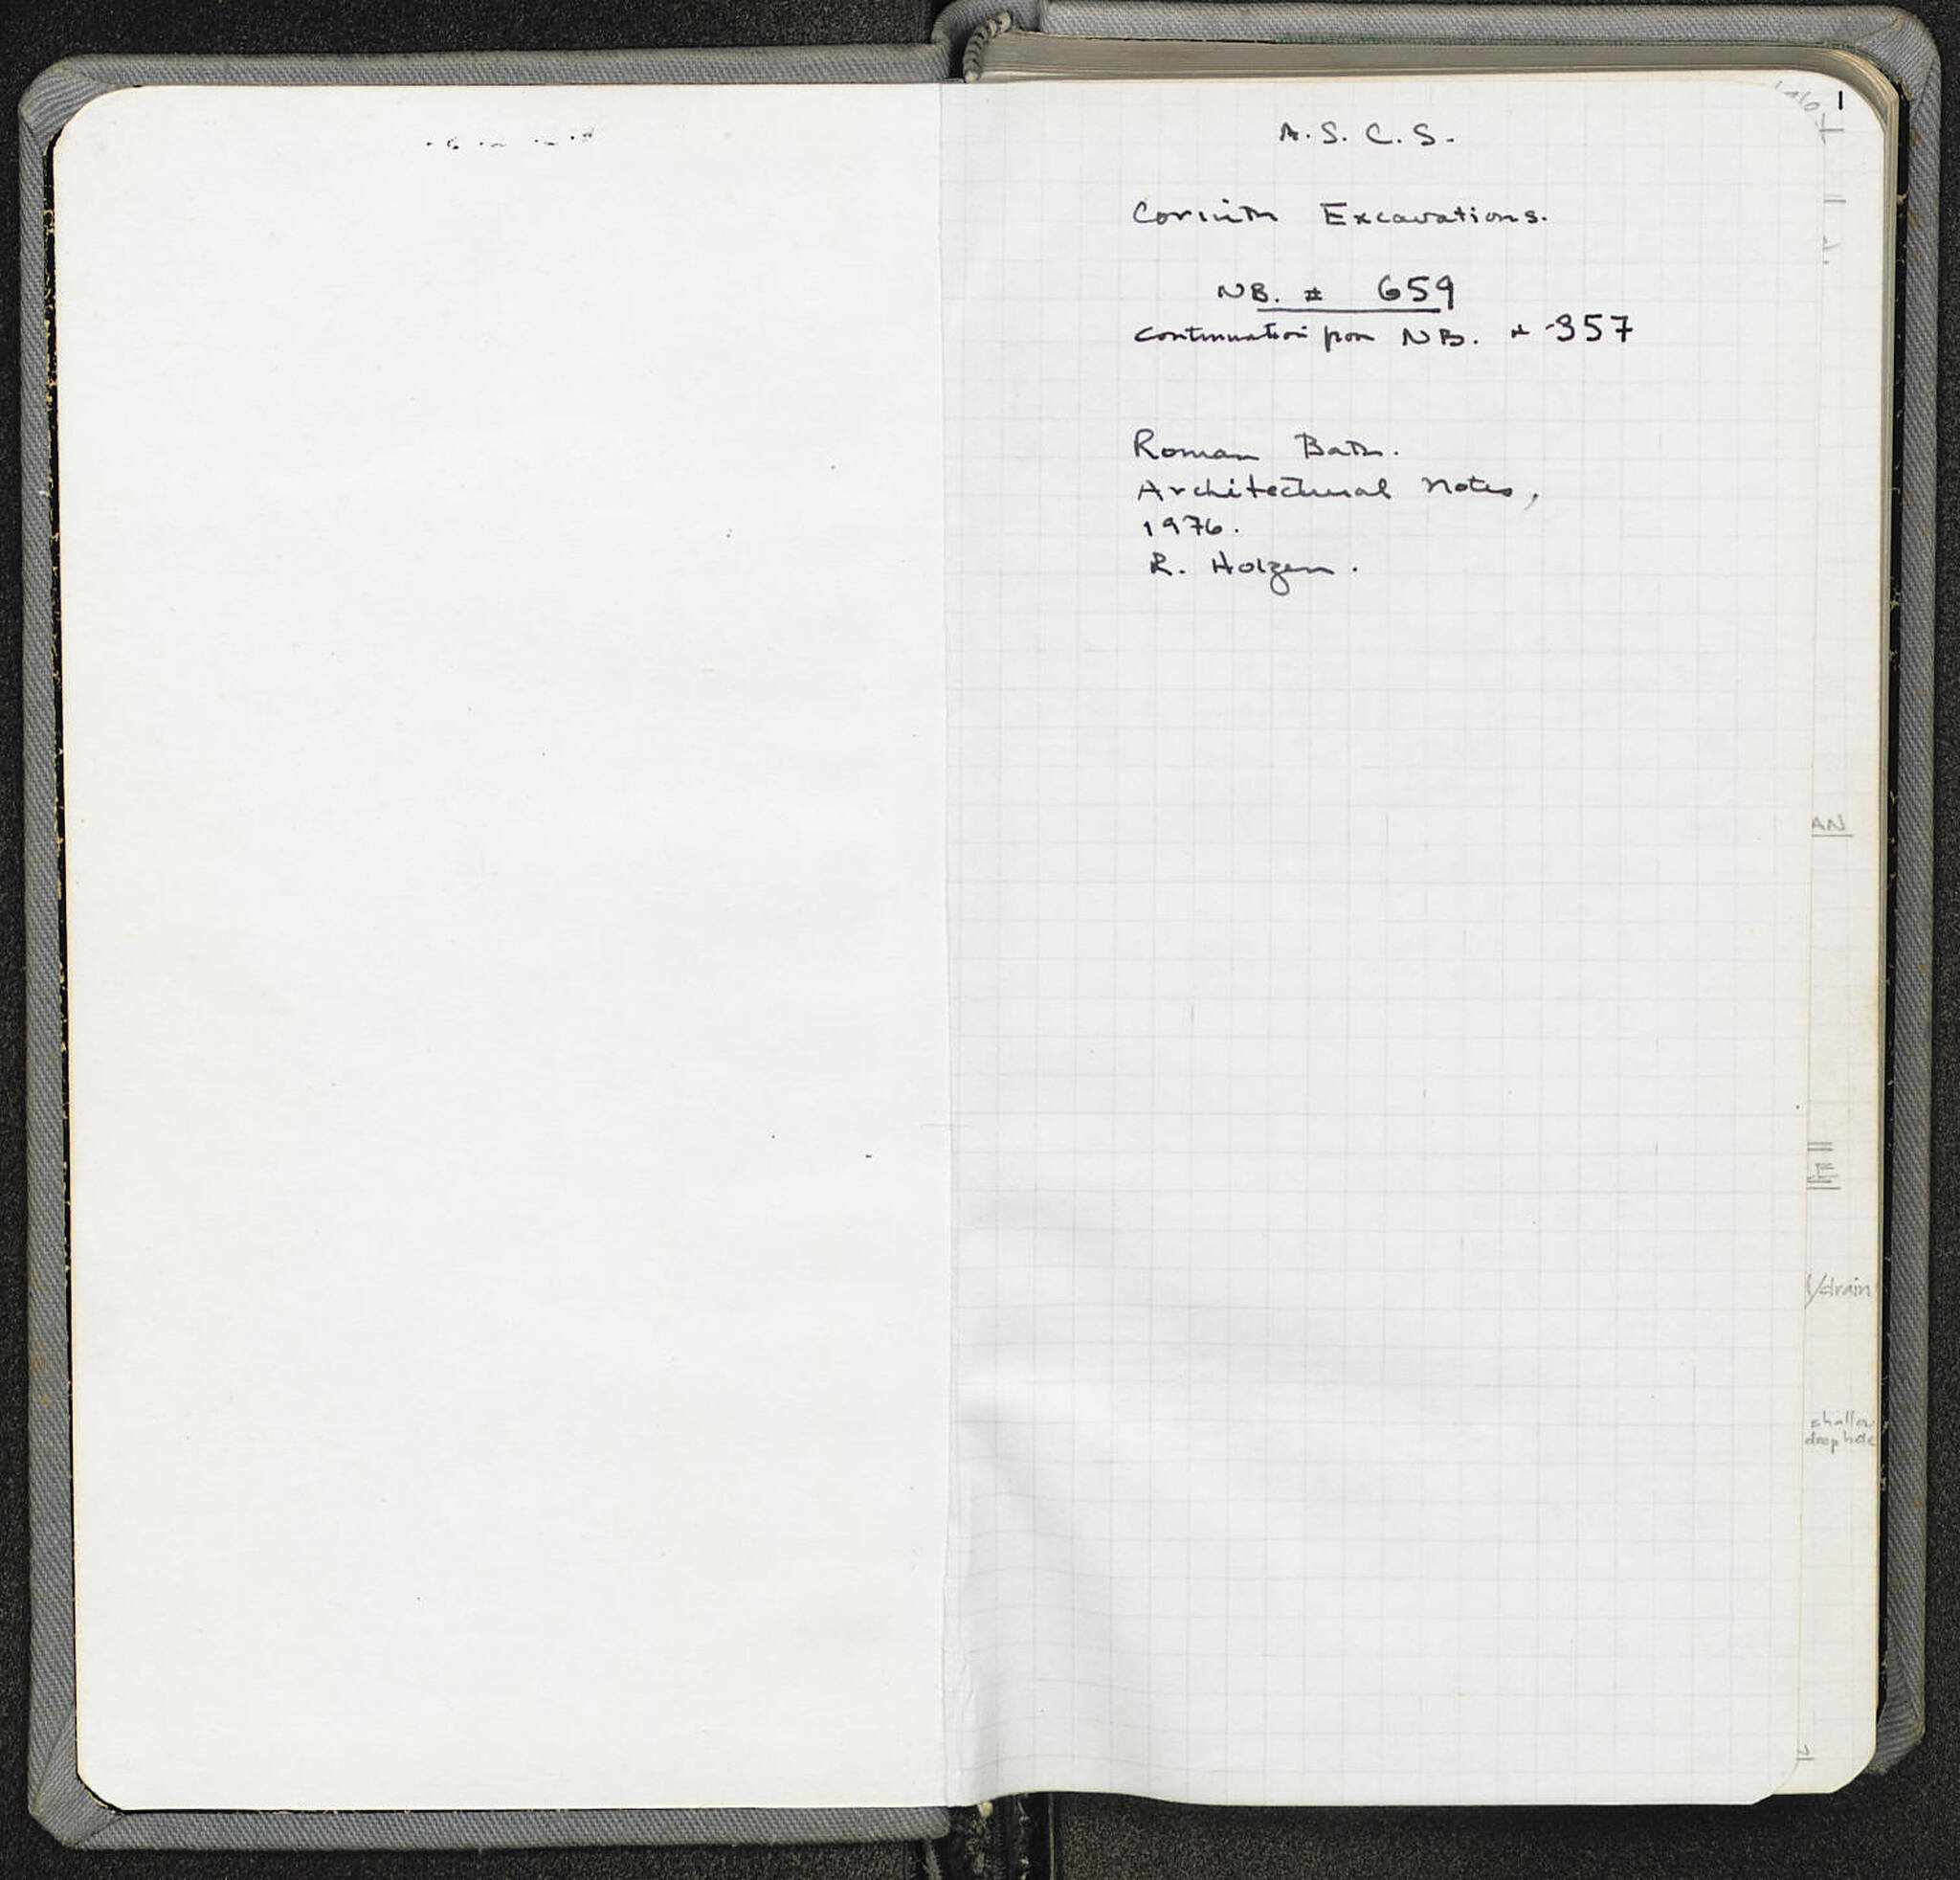 1
A. S. C. S.
Corinth Excavations.
NB. # 659
Continuation from NB. # 357
Roman Bath.
Architectural Notes,
1976.
R. Holzen.
AN
E
drain
shallow
deep hole